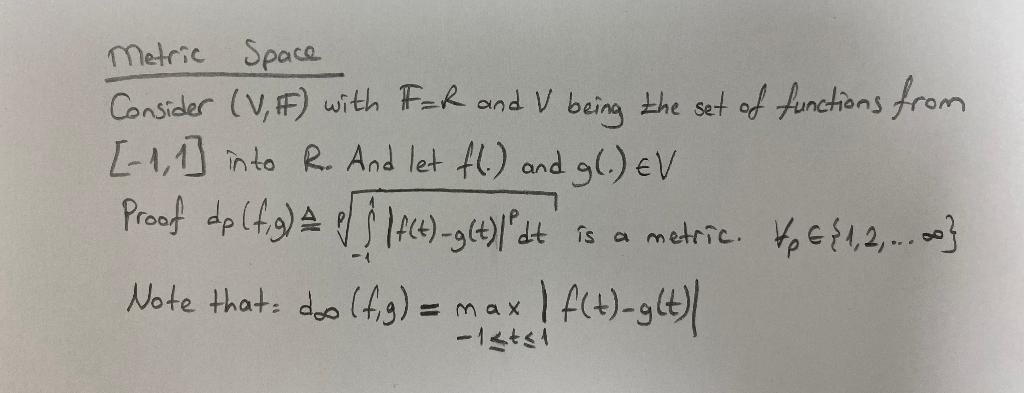 Metric Space
Consider (V, 𝔽) with 𝔽=R and V being the set of functions from
[-1,1] into R. And let f(.) and g(.) ∈V
Proof dp(f,g) ≜ ᵖ√(∫₋₁¹ |f(t)-g(t)|ᵖ dt) is a metric. ∀p ∈ {1,2,...∞}
Note that: d∞(f,g) = max | f(t)-g(t)|
-1≤t≤1